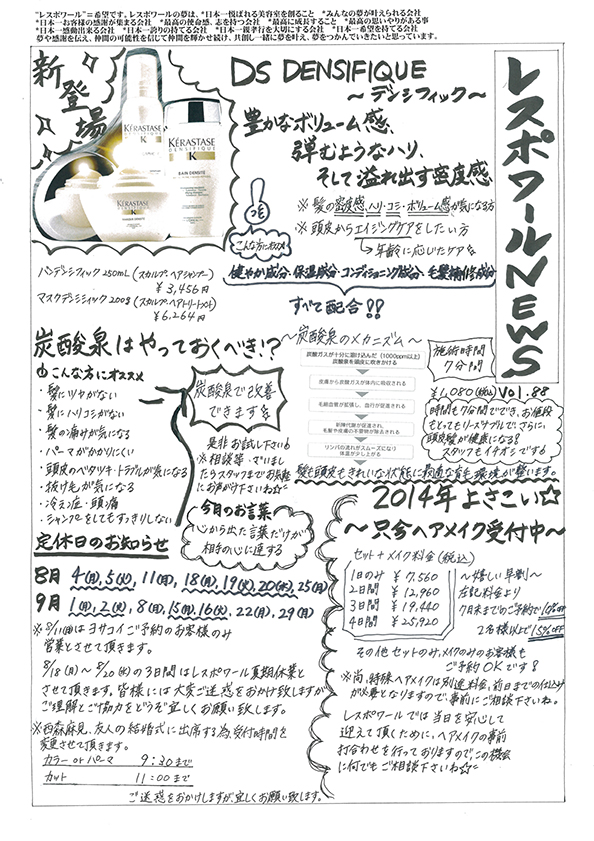 "レスポワール"=希望です。レスポワールの夢は、*日本一悦ばれる美容室を創ること *みんなの夢が叶えられる会社
*日本一お客様の感謝が集まる会社 *最高の使命感、志を持つ会社 *最高に成長すること *最高の思いやりがある事
*日本一感動出来る会社 *日本一誇りの持てる会社 *日本一親孝行を大切にする会社 *日本一希望を持てる会社
夢や感謝を伝え、仲間の可能性を信じて仲間を輝かせ続け、共創し一緒に夢を叶え、夢をつかんでいきたいと思っています。
レスポワールNEWS
Vol.88
新登場
KÉRASTASE
DENSIFIQUE
KÉRASTASE
DENSIFIQUE
BAIN DENSITÉ
KÉRASTASE
DS DENSIFIQUE
～デンシフィック～
豊かなボリューム感、
弾むようなハリ、
そして溢れ出す密度感
こんな方にオススメ
※髪の密度感、ハリ・コシ・ボリューム感が気になる方
※頭皮からエイジングケアをしたい方
↳年齢に応じたケア
健やか成分・保湿成分・コンディショニング成分・毛髪補修成分
すべて配合!!
バンデンシフィック 250ml (スカルプ・ヘアシャンプー)
¥3,456円
マスクデンシフィック 200g (スカルプ・ヘアトリートメント)
¥6,264円
炭酸泉はやっておくべき!?
こんな方にオススメ
・髪にツヤがない
・髪にハリコシがない
・髪の痛みが気になる
・パーマがかかりにくい
・頭皮のベタツキ・トラブルが気になる
・抜け毛が気になる
・冷え症・頭痛
・シャンプーをしてもすっきりしない
炭酸泉で改善
できます
是非お試し下さい
※相談等ございまし
たらスタッフまでお気軽
にお声がけ下さいね☆
～炭酸泉のメカニズム～
炭酸ガスが十分に溶け込んだ(1000ppm以上)
炭酸泉を頭皮に吹きかける
皮膚から炭酸ガスが体内に吸収される
毛細血管が拡張し、血行が促進される
新陳代謝が促進され、
毛髪や皮膚の不要物が除去される
リンパの流れがスムーズになり
体温が少し上がる
施術時間
7分間
¥1,080(税込)
時間も7分間でき、お値段
もとってもリーズナブルで、さらに、
頭皮髪が健康になる!
スタッフもイチオシです
髪も頭皮もきれいな状態に最適な育毛環境が整います。
今月のお言葉
心から出た言葉だけが
相手の心に達する
定休日のお知らせ
8月 4(月),5(火),11(月),18(月),19(火),20(水),25(月)
9月 1(月),2(火),8(月),15(月),16(火),22(月),29(月)
※8/11(月)はヨサコイご予約のお客様のみ
営業とさせて頂きます。
8/18(月)～8/20(水)の3日間はレスポワール夏期休業と
させて頂きます。皆様には大変ご迷惑をおかけ致しますが
ご理解とご協力をどうぞ宜しくお願い致します。
※西森麻見、友人の結婚式に出席する為、受付時間を
変更させて頂きます。
カラー or パーマ 9:30まで
カット 11:00まで
ご迷惑をおかけしますが、宜しくお願い致します。
2014年よさこい☆
～只今ヘアメイク受付中～
セット+メイク料金(税込)
1日のみ ¥7,560
2日間 ¥12,960
3日間 ¥19,440
4日間 ¥25,920
～嬉しい早割～
左記料金より
7月末までのご予約で10%OFF
2名様以上で15%OFF
その他セットのみ、メイクのみのお客様も
ご予約OKです!
※尚、特殊ヘアメイクは別途料金、前日までの仕込み
が必要となりますので、事前にご相談下さいね。
レスポワールでは当日を安心して
迎えて頂くために、ヘアメイクの事前
打合わせを行っておりますので、この機会
に何でもご相談下さいね☆